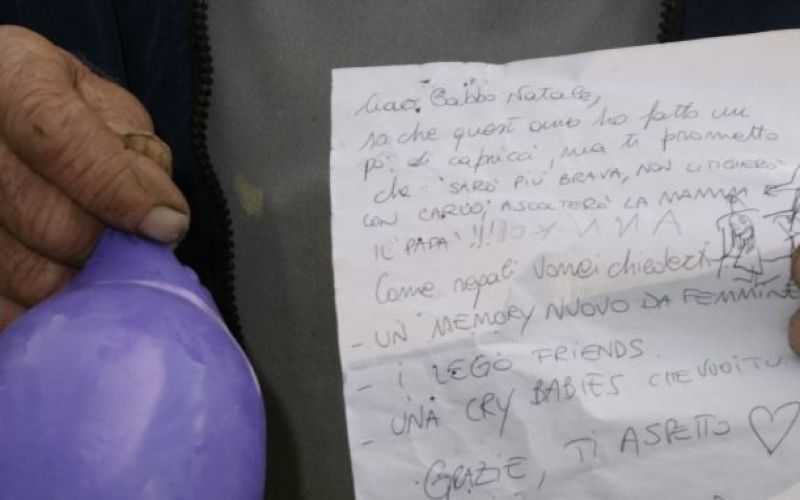 Ciao Babbo Natale,
so che quest'anno ho fatto un
pò di capricci, ma ti prometto
che SARÒ PIÙ BRAVA, NON LITIGHERÒ
CON CARLO, ASCOLTERÒ LA MAMMA
IL PAPÀ!!!
Come regali vorrei chiederti
- UN MEMORY NUOVO DA FEMMINE
- I LEGO FRIENDS.
- UNA CRY BABIES CHE VUOI TU.
GRAZIE, TI ASPETTO